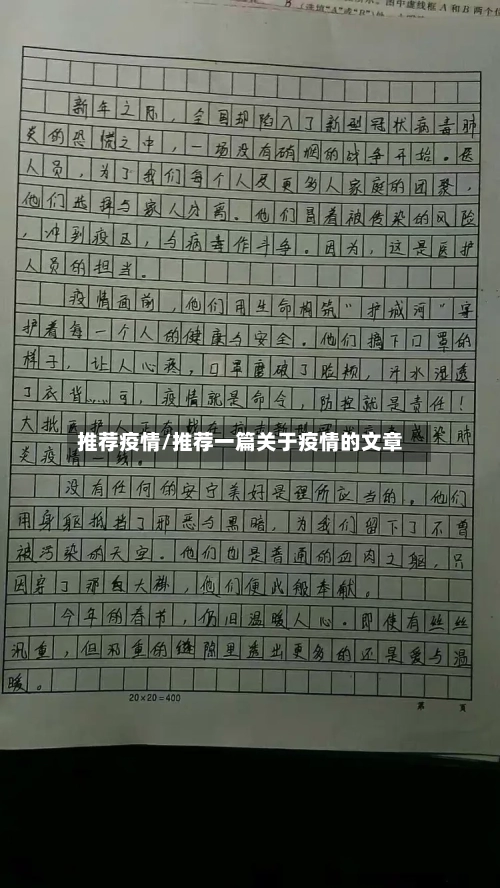 B（选填"A"或"B"）
图中虚线框A和B两个
新年之际，全国却陷入了新型冠状病毒肺
炎的恐慌之中，一场没有硝烟的战争开始。医
人员，为了我们每个人及更多人家庭的团聚，
他们选择与家人分离。他们冒着被传染的风险
，冲到疫区，与病毒作斗争。因为，这是医护
人员的担当。
疫情面前，他们用生命构筑"护城河"守
护着每一个人的健康与安全。他们摘下口罩的
样子，让人心疼，口罩磨破了脸颊，汗水湿透
了衣背……可，疫情就是命令，防控就是责任！
大批医护人
感染肺
推荐疫情/推荐一篇关于疫情的文章
炎疫情一线。
没有任何的安宁美好是理所应当的。他们
用身躯抵挡了邪恶与黑暗，为我们留下了不曾
被污染的天空。他们也是普通的血肉之躯，只
因穿了那白大褂，他们便此般奉献。
今年的春节，仍旧温暖人心。即使有丝丝
沉重，但沉重的缝隙里透出更多的还是爱与温
暖。
20×20=400
第 页